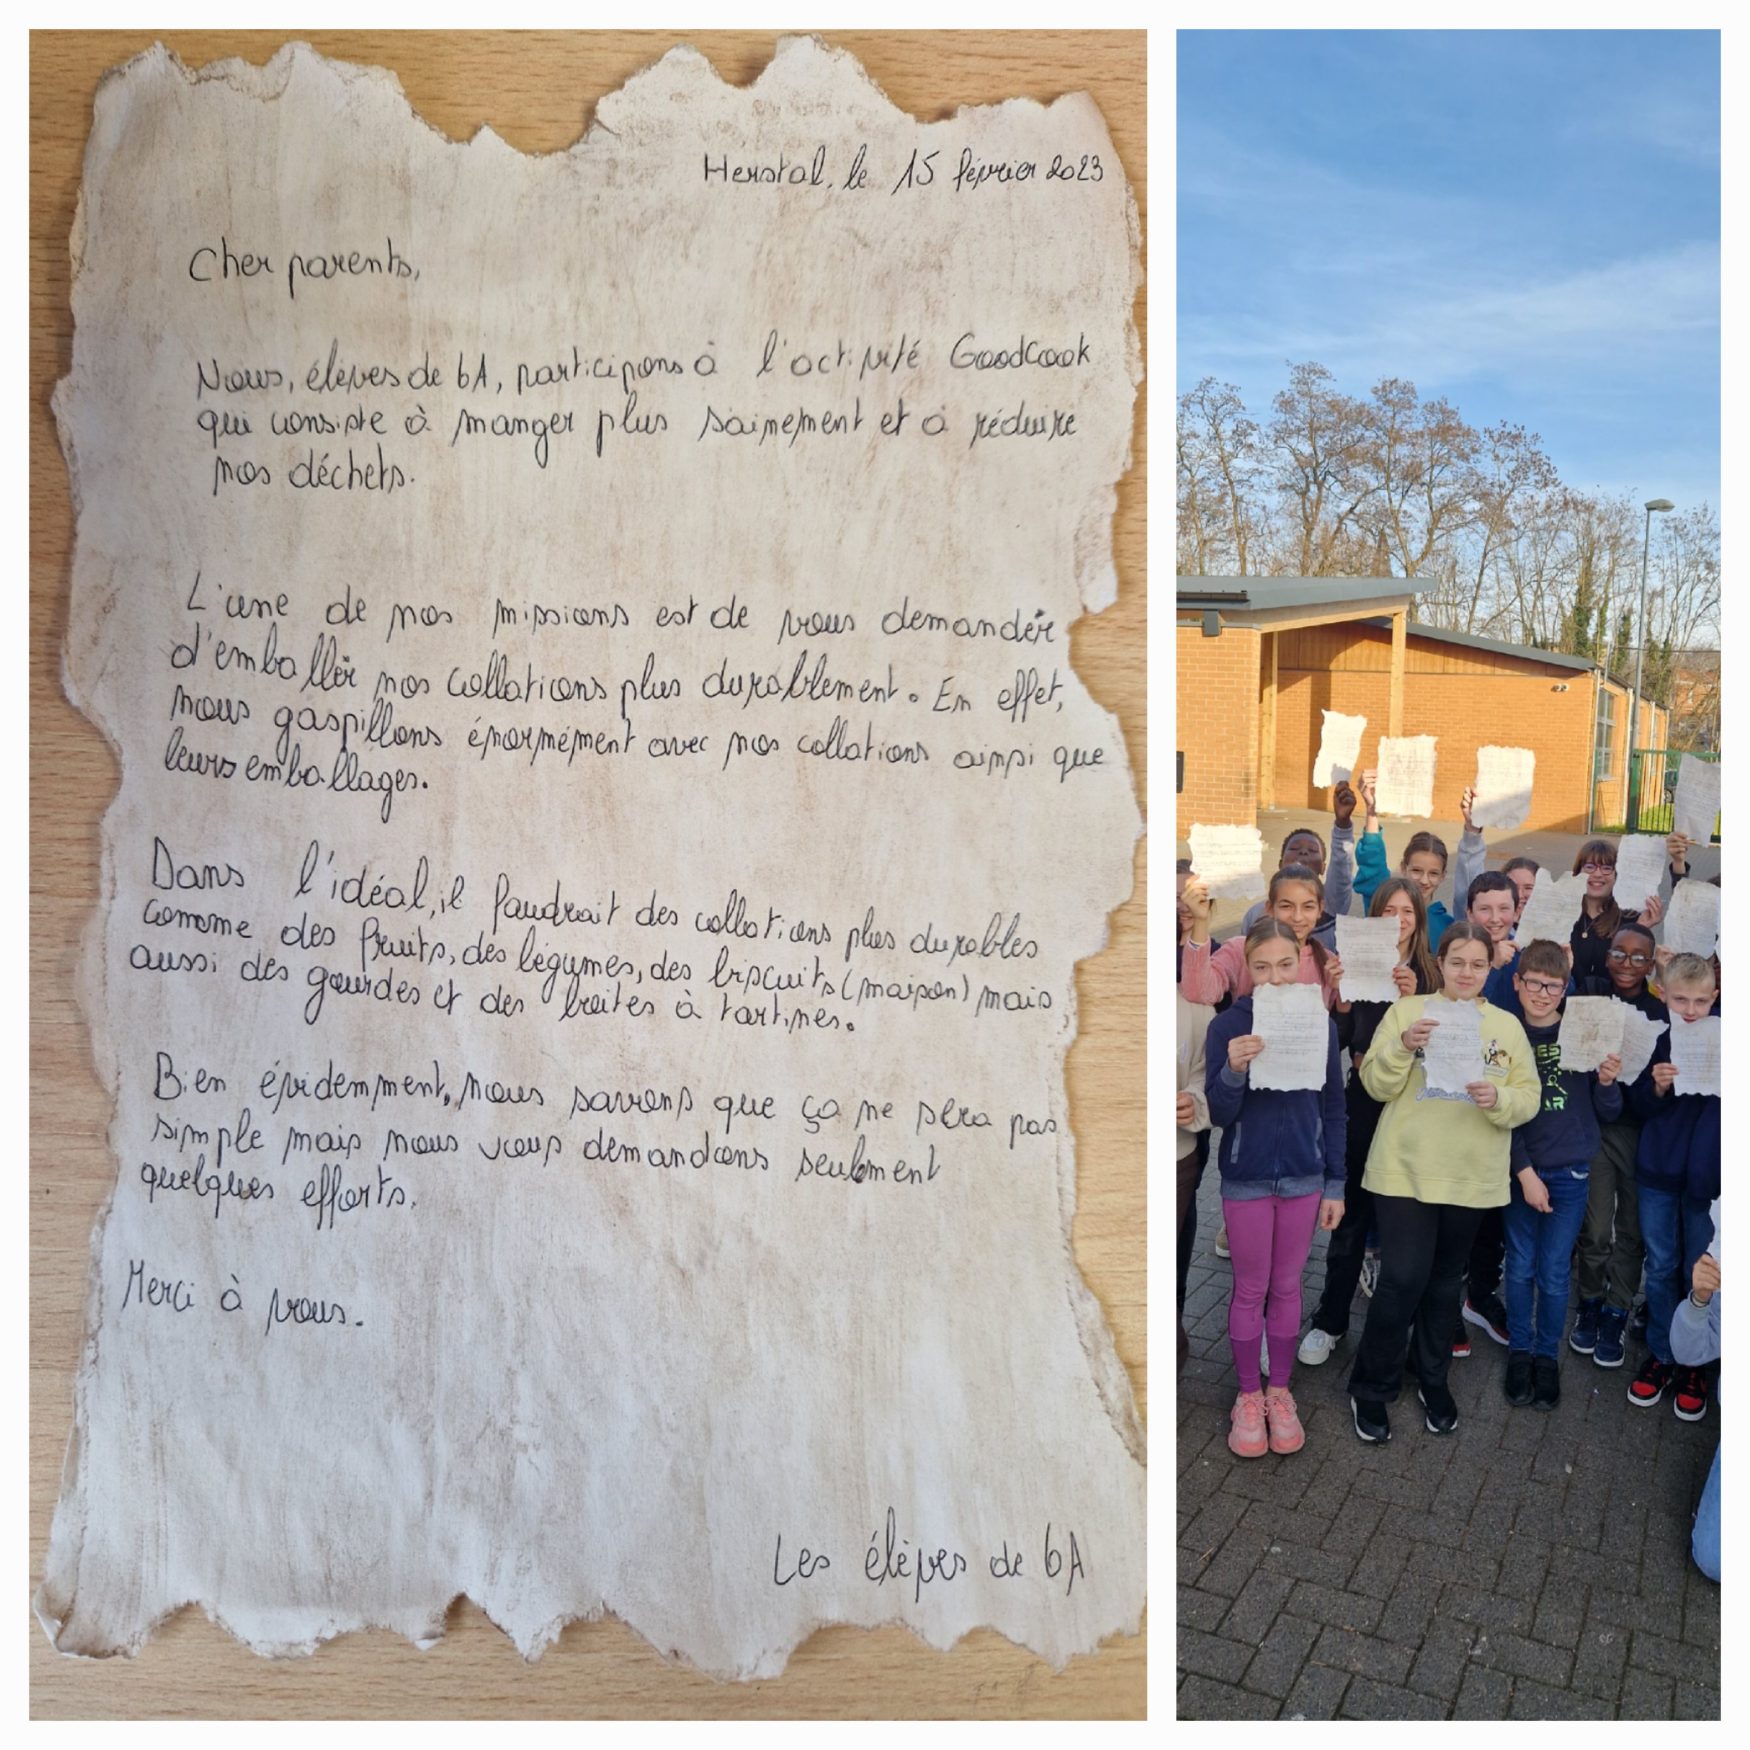 Herstal, le 15 février 2023
Cher parents,
Nous, élèves de 6A, participons à l'activité GoodCook
qui consiste à manger plus sainement et à réduire
nos déchets.
L'une de nos missions est de vous demander
d'emballer nos collations plus durablement. En effet,
nous gaspillons énormément avec nos collations ainsi que
leurs emballages.
Dans l'idéal, il faudrait des collations plus durables
comme des fruits, des légumes, des biscuits (maison) mais
aussi des gourdes et des boites à tartines.
Bien évidemment, nous savons que ça ne sera pas
simple mais nous vous demandons seulement
quelques efforts.
Merci à vous.
Les élèves de 6A